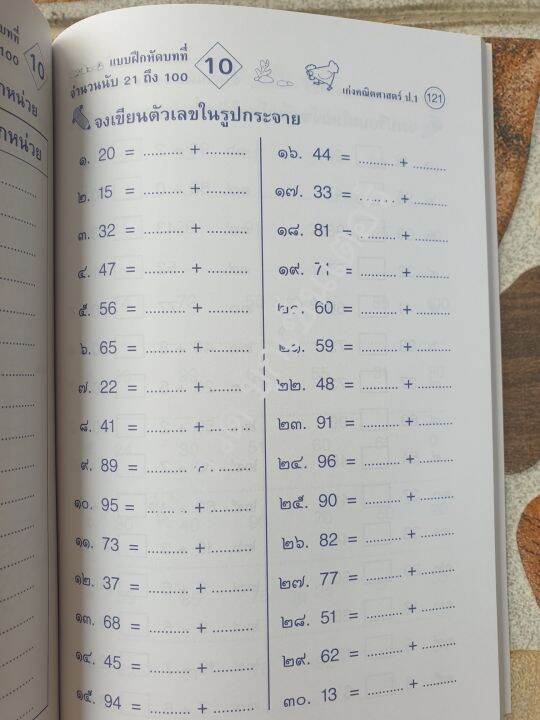 ที่
10
100
กหน่วย
กหน่วย
แบบฝึกหัดบทที่ 10
จำนวนนับ 21 ถึง 100
เก่งคณิตศาสตร์ ป.1 121
จงเขียนตัวเลขในรูปกระจาย
๑. 20 = .......... + ..........
๒. 15 = .......... + ..........
๓. 32 = .......... + ..........
๔. 47 = .......... + ..........
๕. 56 = .......... + ..........
๖. 65 = .......... + ..........
๗. 22 = .......... + ..........
๘. 41 = .......... + ..........
๙. 89 = .......... ..........
๑๐. 95 = .......... + ..........
๑๑. 73 = .......... + ..........
๑๒. 37 = .......... + ..........
๑๓. 68 = .......... + ..........
๑๔. 45 = .......... + ..........
๑๕. 94 = .......... + ..........
๑๖. 44 = .......... + ..........
๑๗. 33 = .......... + ..........
๑๘. 81 = .......... + ..........
๑๙. = .......... + ..........
60 = .......... + ..........
59 = .......... + ..........
๒๒. 48 = .......... + ..........
๒๓. 91 = .......... + ..........
๒๔. 96 = .......... + ..........
๒๕. 90 = .......... + ..........
๒๖. 82 = .......... + ..........
๒๗. 77 = .......... + ..........
๒๘. 51 = .......... + ..........
๒๙. 62 = .......... + ..........
๓๐. 13 = .......... + ..........